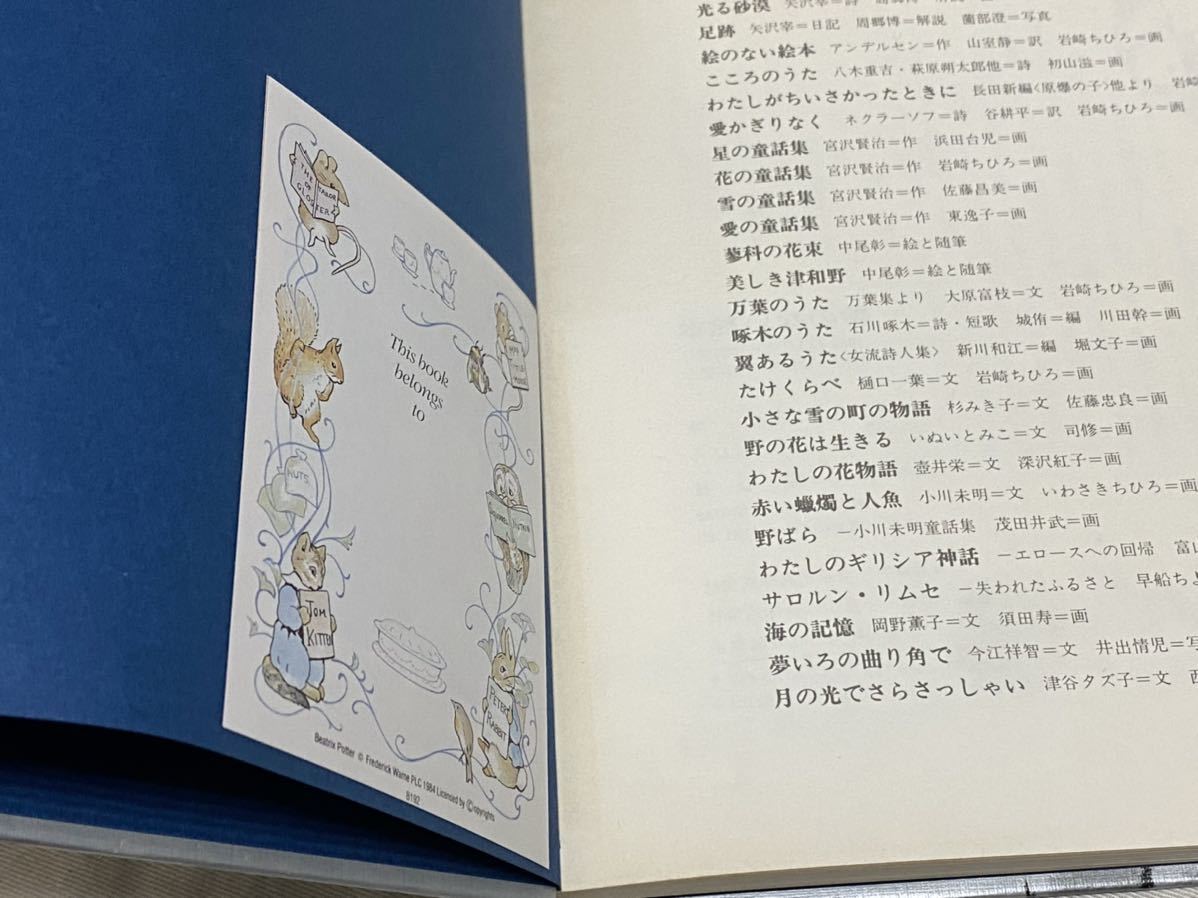 THE TAILOR
OF
GLOUSTER
This book
belongs
to
NUTS
SQUIRREL NUTKIN
TOM
KITTEN
PETER
RABBIT
Beatrix Potter © Frederick Warne PLC 1984 Licensed by ©opyrights
B192
光る砂漠 矢沢宰=詩
足跡 矢沢宰=日記 周郷博=解説 薗部澄=写真
絵のない絵本 アンデルセン=作 山室静=訳 岩崎ちひろ=画
こころのうた 八木重吉・萩原朔太郎他=詩 初山滋=画
わたしがちいさかったときに 長田新編〈原爆の子〉他より 岩崎
愛かぎりなく ネクラーソフ=詩 谷耕平=訳 岩崎ちひろ=画
星の童話集 宮沢賢治=作 浜田台児=画
花の童話集 宮沢賢治=作 岩崎ちひろ=画
雪の童話集 宮沢賢治=作 佐藤昌美=画
愛の童話集 宮沢賢治=作 東逸子=画
蓼科の花束 中尾彰=絵と随筆
美しき津和野 中尾彰=絵と随筆
万葉のうた 万葉集より 大原富枝=文 岩崎ちひろ=画
啄木のうた 石川啄木=詩・短歌 城侑=編 川田幹=画
翼あるうた〈女流詩人集〉 新川和江=編 堀文子=画
たけくらべ 樋口一葉=文 岩崎ちひろ=画
小さな雪の町の物語 杉みき子=文 佐藤忠良=画
野の花は生きる いぬいとみこ=文 司修=画
わたしの花物語 壺井栄=文 深沢紅子=画
赤い蠟燭と人魚 小川未明=文 いわさきちひろ=画
野ばら −小川未明童話集 茂田井武=画
わたしのギリシア神話 −エロースへの回帰 富山
サロルン・リムセ −失われたふるさと 早船ちよ
海の記憶 岡野薫子=文 須田寿=画
夢いろの曲り角で 今江祥智=文 井出情児=写
月の光でさらさっしゃい 津谷タズ子=文 西